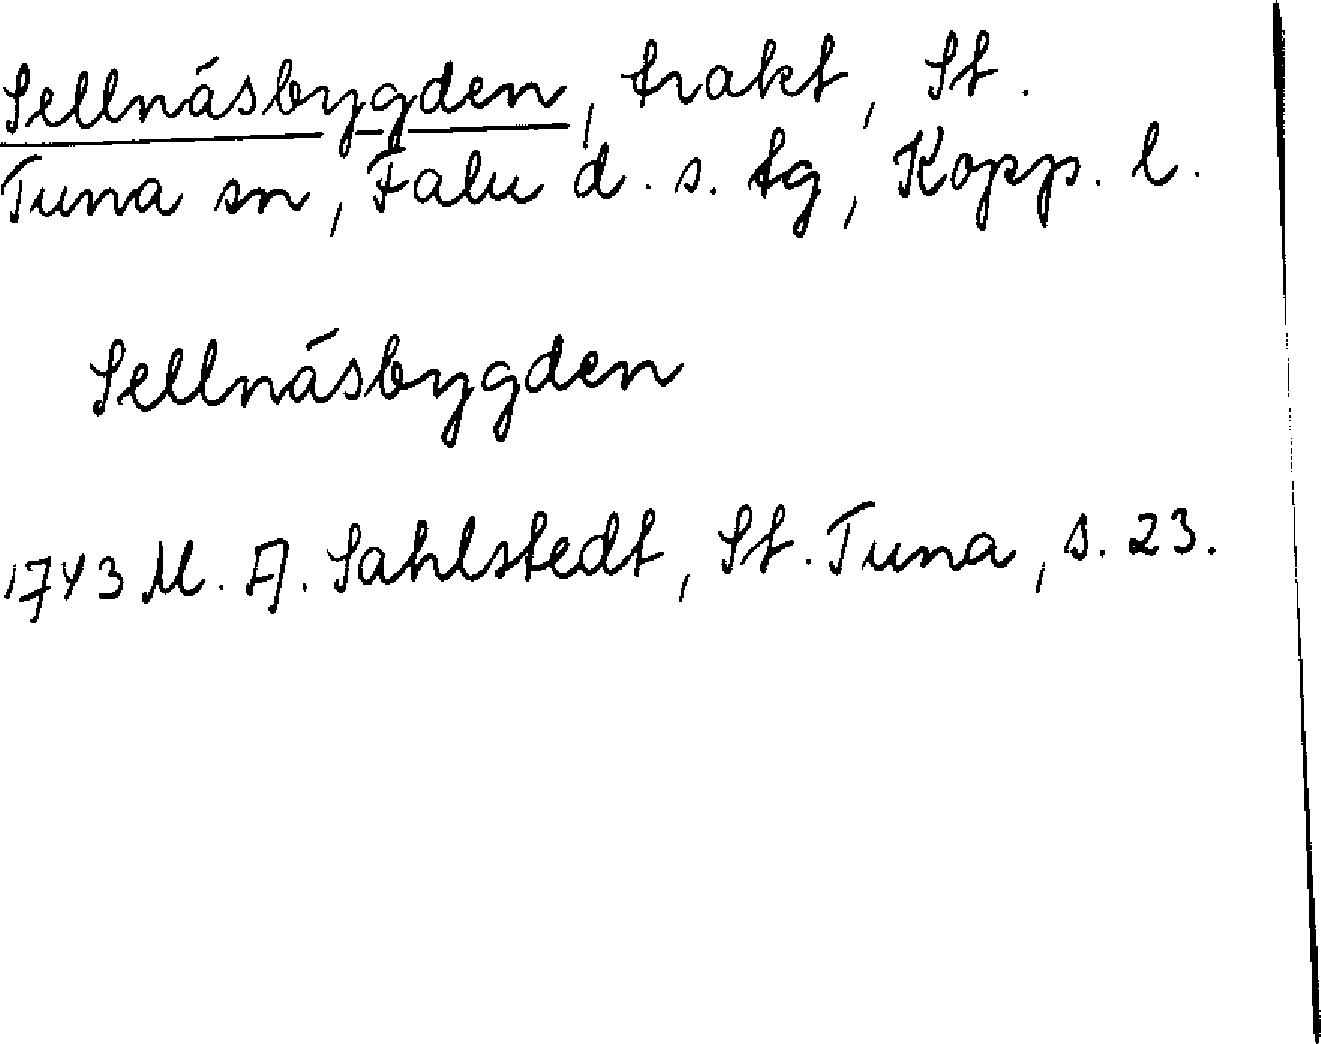 Sellnäsbygden, trakt, St.
Tuna sn, Falu d. s. tg, Kopp. l.
Sellnäsbygden
1743 M. A. Sahlstedt, St. Tuna, s. 23.